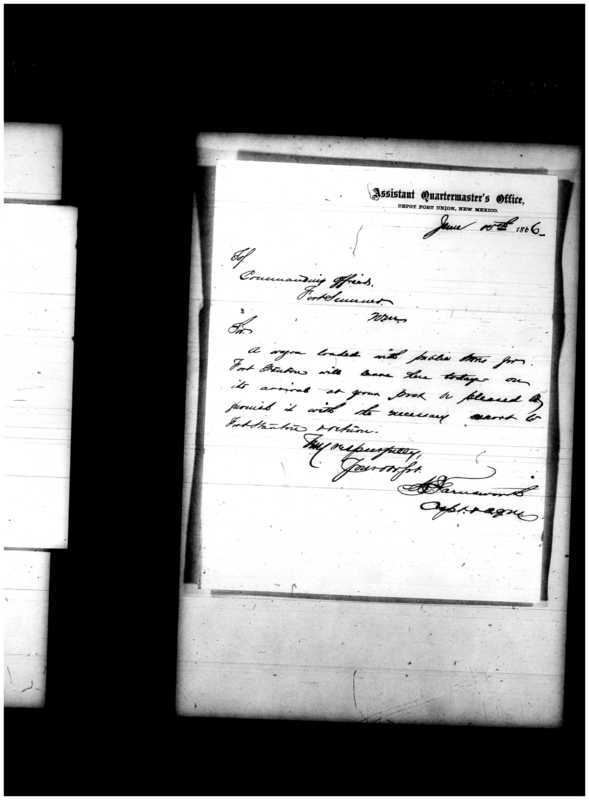 Assistant Quartermaster's Office,
DEPOT FORT UNION, NEW MEXICO.
June 10th 1866
To
Commanding Officer,
Fort Sumner
Sir
A wagon loaded with public stores for
Fort Stanton will leave here today on
its arrival at your Post be pleased to
furnish it with the necessary escort to
Fort Stanton & return.
Very respectfully,
Your obt. svt.
Farnsworth
Capt. & AQM